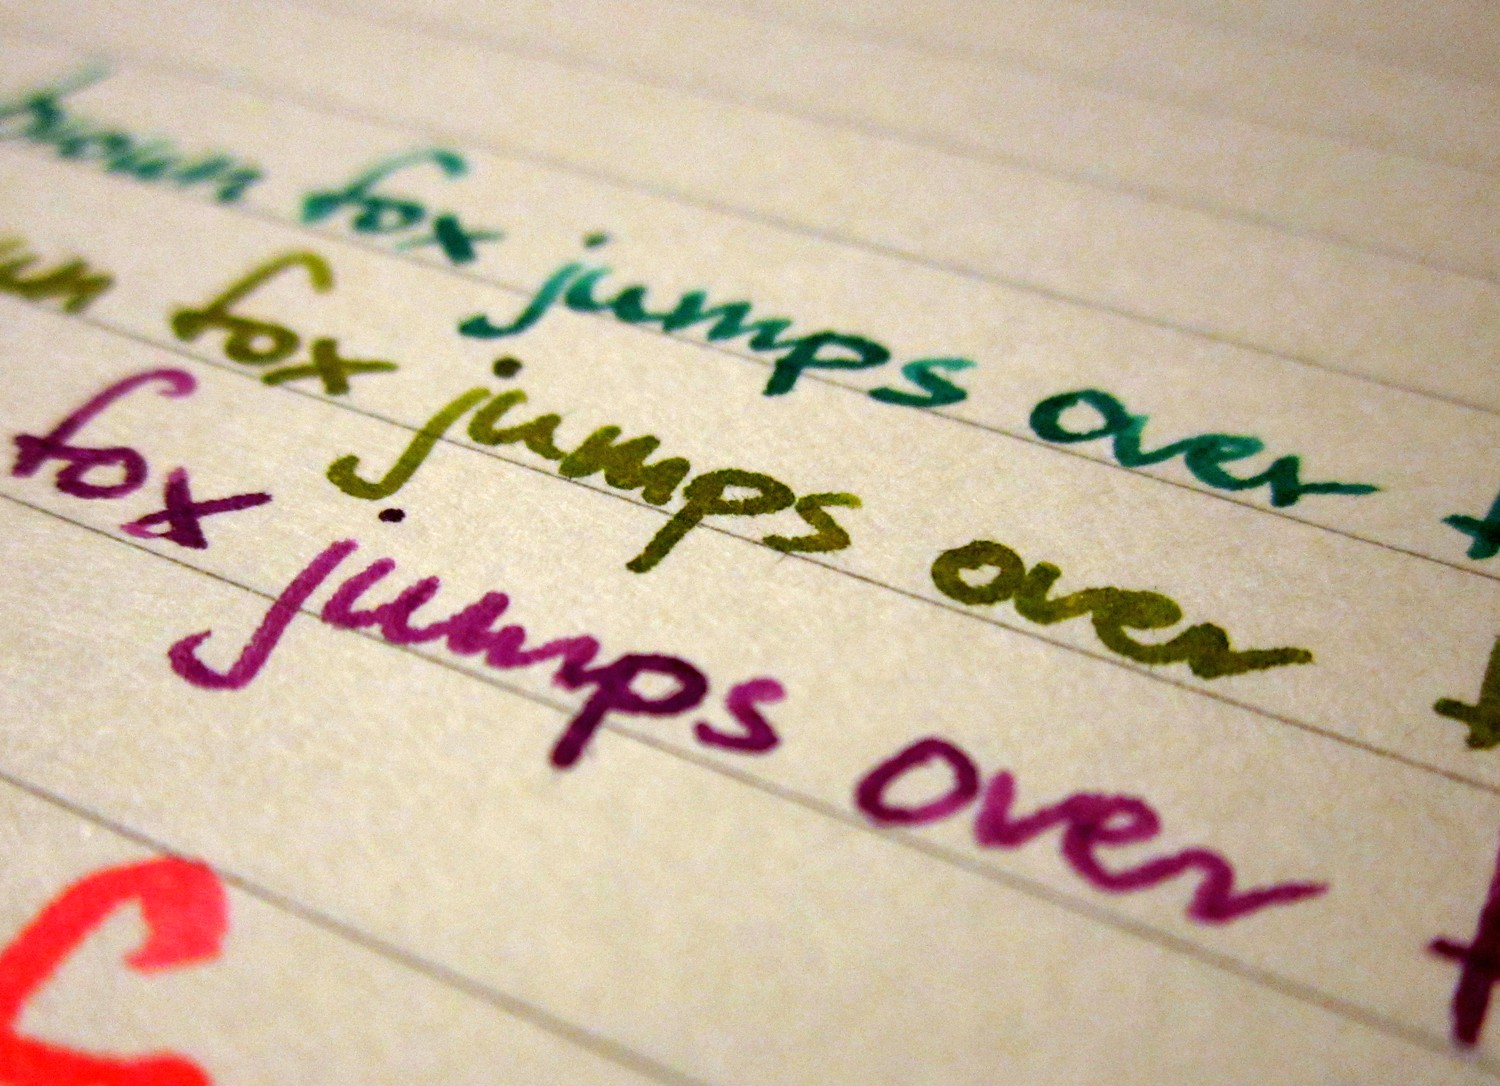 brown fox jumps over t
wn fox jumps over t
fox jumps over t